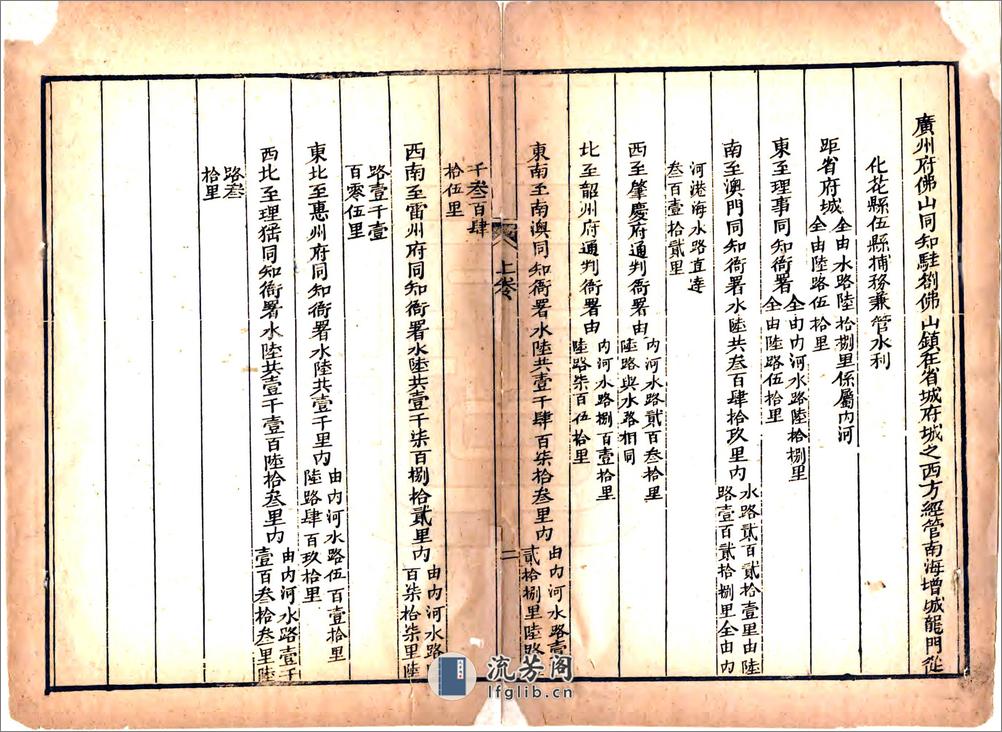 廣州府佛山同知駐劄佛山鎮在省城府城之西方經管南海增城龍門從
化花縣伍縣捕務兼管水利
距省府城
全由水路陸拾捌里係屬內河
全由陸路伍拾里
東至理事同知衙署
全由內河水路陸拾捌里
全由陸路伍拾里
南至澳門同知衙署水陸共叁百肆拾玖里內
水路貳百貳拾壹里由陸
路壹百貳拾捌里全由內
河港海水路直達
叁百壹拾貳里
西至肇慶府通判衙署由
內河水路貳百叁拾里
陸路與水路相同
北至韶州府通判衙署由
內河水路捌百壹拾里
陸路柒百伍拾里
東南至南澳同知衙署水陸共壹千肆百柒拾叁里內
由內河水路壹百
貳拾捌里陸路
上卷
二
千叁百肆
拾伍里
西南至雷州府同知衙署水陸共壹千柒百捌拾貳里內
由內河水路
百柒拾柒里陸
路壹千壹
百零伍里
東北至惠州府同知衙署水陸共壹千里內
由內河水路伍百壹拾里
陸路肆百玖拾里
西北至理猺同知衙署水陸共壹千壹百陸拾叁里內
由內河水路壹千
壹百叁拾叁里陸
路叁
拾里
流芳阁
lfglib.cn